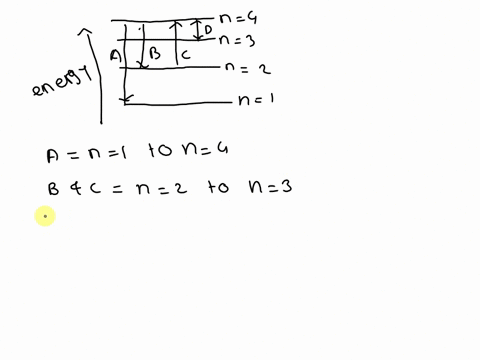 n=4
D
n=3
A B C
n=2
energy
n=1
A = n=1 to n=4
B & C = n=2 to n=3